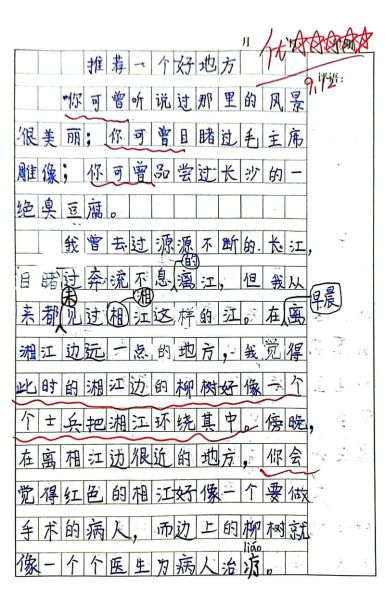 优
9.12
推荐一个好地方
你可曾听说过那里的风景
很美丽；你可曾目睹过毛主席
雕像；你可曾品尝过长沙的一
绝臭豆腐。
我曾去过源源不断的长江，
目睹过奔流不息的漓江，但我从
来都未见过湘江这样的江。在早晨离
湘江边远一点的地方，我觉得
此时的湘江边的柳树好像一个
个士兵把湘江环绕其中。傍晚，
在离相江边很近的地方，你会
觉得红色的相江好像一个要做
手术的病人，而边上的柳树就
liáo
像一个个医生为病人治疗。